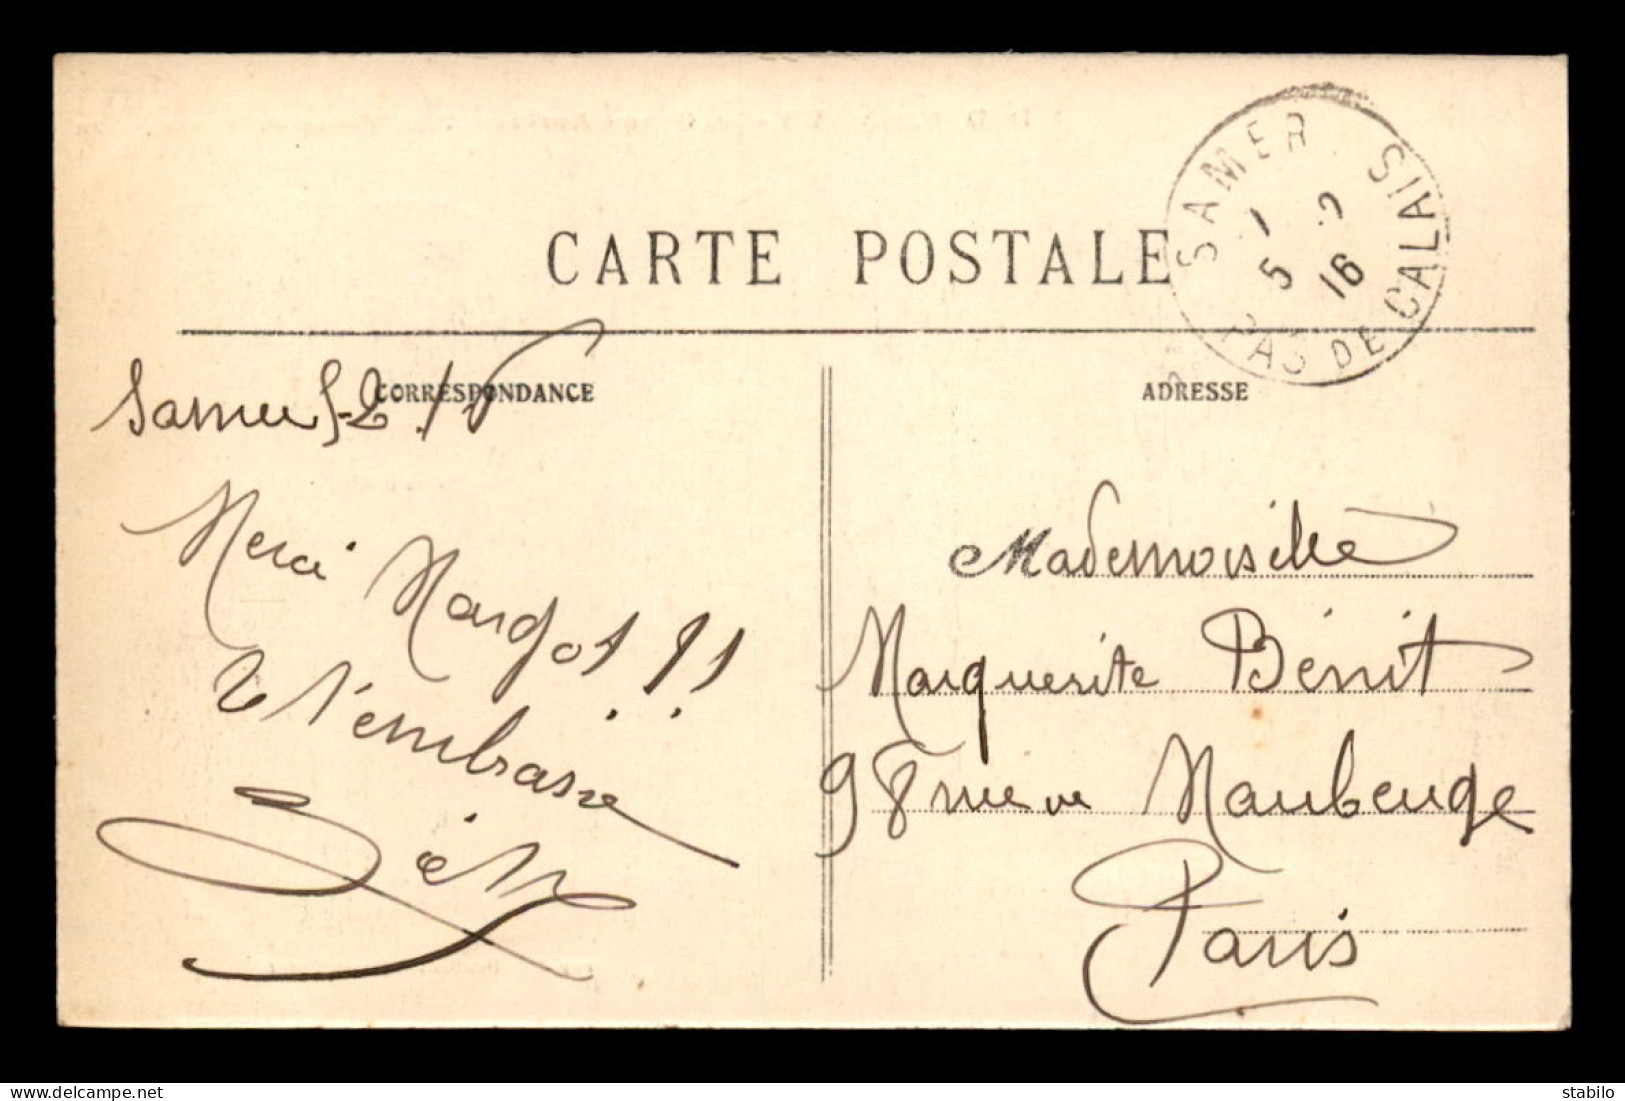 CARTE POSTALE
SAMER
PAS DE CALAIS
5 2
16
CORRESPONDANCE
ADRESSE
Samer 5-2.16
Merci Margot !!
t'embrasse
Mademoiselle
Marguerite Bénit
98 rue de Maubeuge
Paris
stabilo